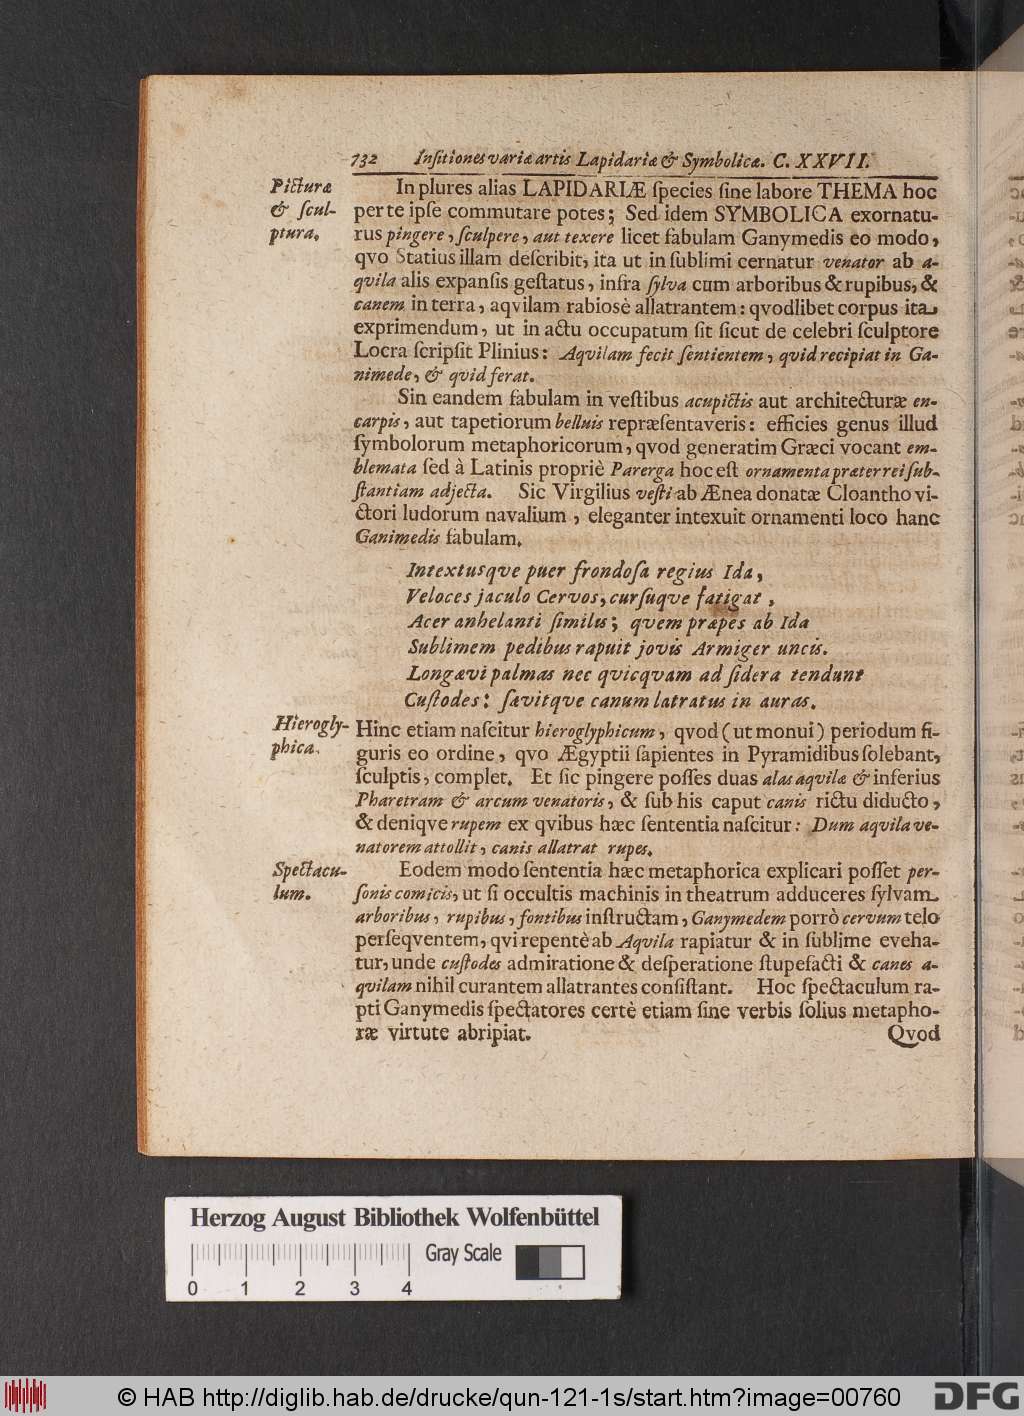 732 Inſitiones variæ artis Lapidariæ & Symbolicæ. C. XXVII.
Picturæ
& ſcul-
ptura.
In plures alias LAPIDARIÆ ſpecies ſine labore THEMA hoc
per te ipſe commutare potes; Sed idem SYMBOLICA exornatu-
rus pingere, ſculpere, aut texere licet fabulam Ganymedis eo modo,
qvo Statius illam deſcribit, ita ut in ſublimi cernatur venator ab a-
qvila alis expanſis geſtatus, infra ſylva cum arboribus & rupibus, &
canem in terra, aqvilam rabiosè allatrantem: qvodlibet corpus ita
exprimendum, ut in actu occupatum ſit ſicut de celebri ſculptore
Locra ſcripſit Plinius: Aqvilam fecit ſentientem, qvid recipiat in Ga-
nimede, & qvid ferat.
Sin eandem fabulam in veſtibus acupictis aut architecturæ en-
carpis, aut tapetiorum belluis repræſentaveris: efficies genus illud
ſymbolorum metaphoricorum, qvod generatim Græci vocant em-
blemata ſed à Latinis propriè Parerga hoc eſt ornamenta præter rei ſub-
ſtantiam adjecta. Sic Virgilius veſti ab Ænea donatæ Cloantho vi-
ctori ludorum navalium, eleganter intexuit ornamenti loco hanc
Ganimedis fabulam.
Intextusqve puer frondoſa regius Ida,
Veloces jaculo Cervos, curſuqve fatigat,
Acer anhelanti ſimilis; qvem præpes ab Ida
Sublimem pedibus rapuit jovis Armiger uncis.
Longævi palmas nec qvicqvam ad ſidera tendunt
Cuſtodes: ſævitqve canum latratus in auras.
Hierogly-
phica.
Hinc etiam naſcitur hieroglyphicum, qvod (ut monui) periodum fi-
guris eo ordine, qvo Ægyptii ſapientes in Pyramidibus ſolebant,
ſculptis, complet. Et ſic pingere poſſes duas alas aqvilæ & inferius
Pharetram & arcum venatoris, & ſub his caput canis rictu diducto,
& deniqve rupem ex qvibus hæc ſententia naſcitur: Dum aqvila ve-
natorem attollit, canis allatrat rupes.
Spectacu-
lum.
Eodem modo ſententia hæc metaphorica explicari poſſet per-
ſonis comicis, ut ſi occultis machinis in theatrum adduceres ſylvam
arboribus, rupibus, fontibus inſtructam, Ganymedem porrò cervum telo
perſeqventem, qvi repentè ab Aqvila rapiatur & in ſublime eveha-
tur, unde cuſtodes admiratione & deſperatione ſtupefacti & canes a-
qvilam nihil curantem allatrantes conſiſtant. Hoc ſpectaculum ra-
pti Ganymedis ſpectatores certè etiam ſine verbis ſolius metapho-
ræ virtute abripiat.
Qvod
Herzog August Bibliothek Wolfenbüttel
Gray Scale
0 1 2 3 4
© HAB http://diglib.hab.de/drucke/qun-121-1s/start.htm?image=00760
DFG